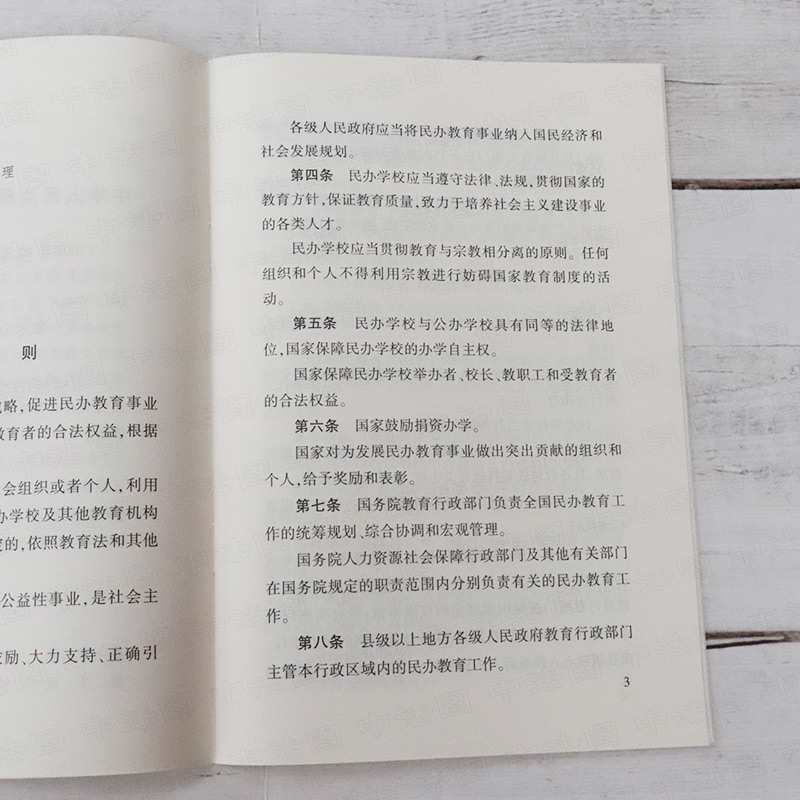 理
则
略,促进民办教育事业
教育者的合法权益,根据
会组织或者个人,利用
办学校及其他教育机构
定的,依照教育法和其他
公益性事业,是社会主
鼓励、大力支持、正确引
各级人民政府应当将民办教育事业纳入国民经济和
社会发展规划。
第四条 民办学校应当遵守法律、法规,贯彻国家的
教育方针,保证教育质量,致力于培养社会主义建设事业
的各类人才。
民办学校应当贯彻教育与宗教相分离的原则。任何
组织和个人不得利用宗教进行妨碍国家教育制度的活
动。
第五条 民办学校与公办学校具有同等的法律地
位,国家保障民办学校的办学自主权。
国家保障民办学校举办者、校长、教职工和受教育者
的合法权益。
第六条 国家鼓励捐资办学。
国家对为发展民办教育事业做出突出贡献的组织和
个人,给予奖励和表彰。
第七条 国务院教育行政部门负责全国民办教育工
作的统筹规划、综合协调和宏观管理。
国务院人力资源社会保障行政部门及其他有关部门
在国务院规定的职责范围内分别负责有关的民办教育工
作。
第八条 县级以上地方各级人民政府教育行政部门
主管本行政区域内的民办教育工作。
3
中法图